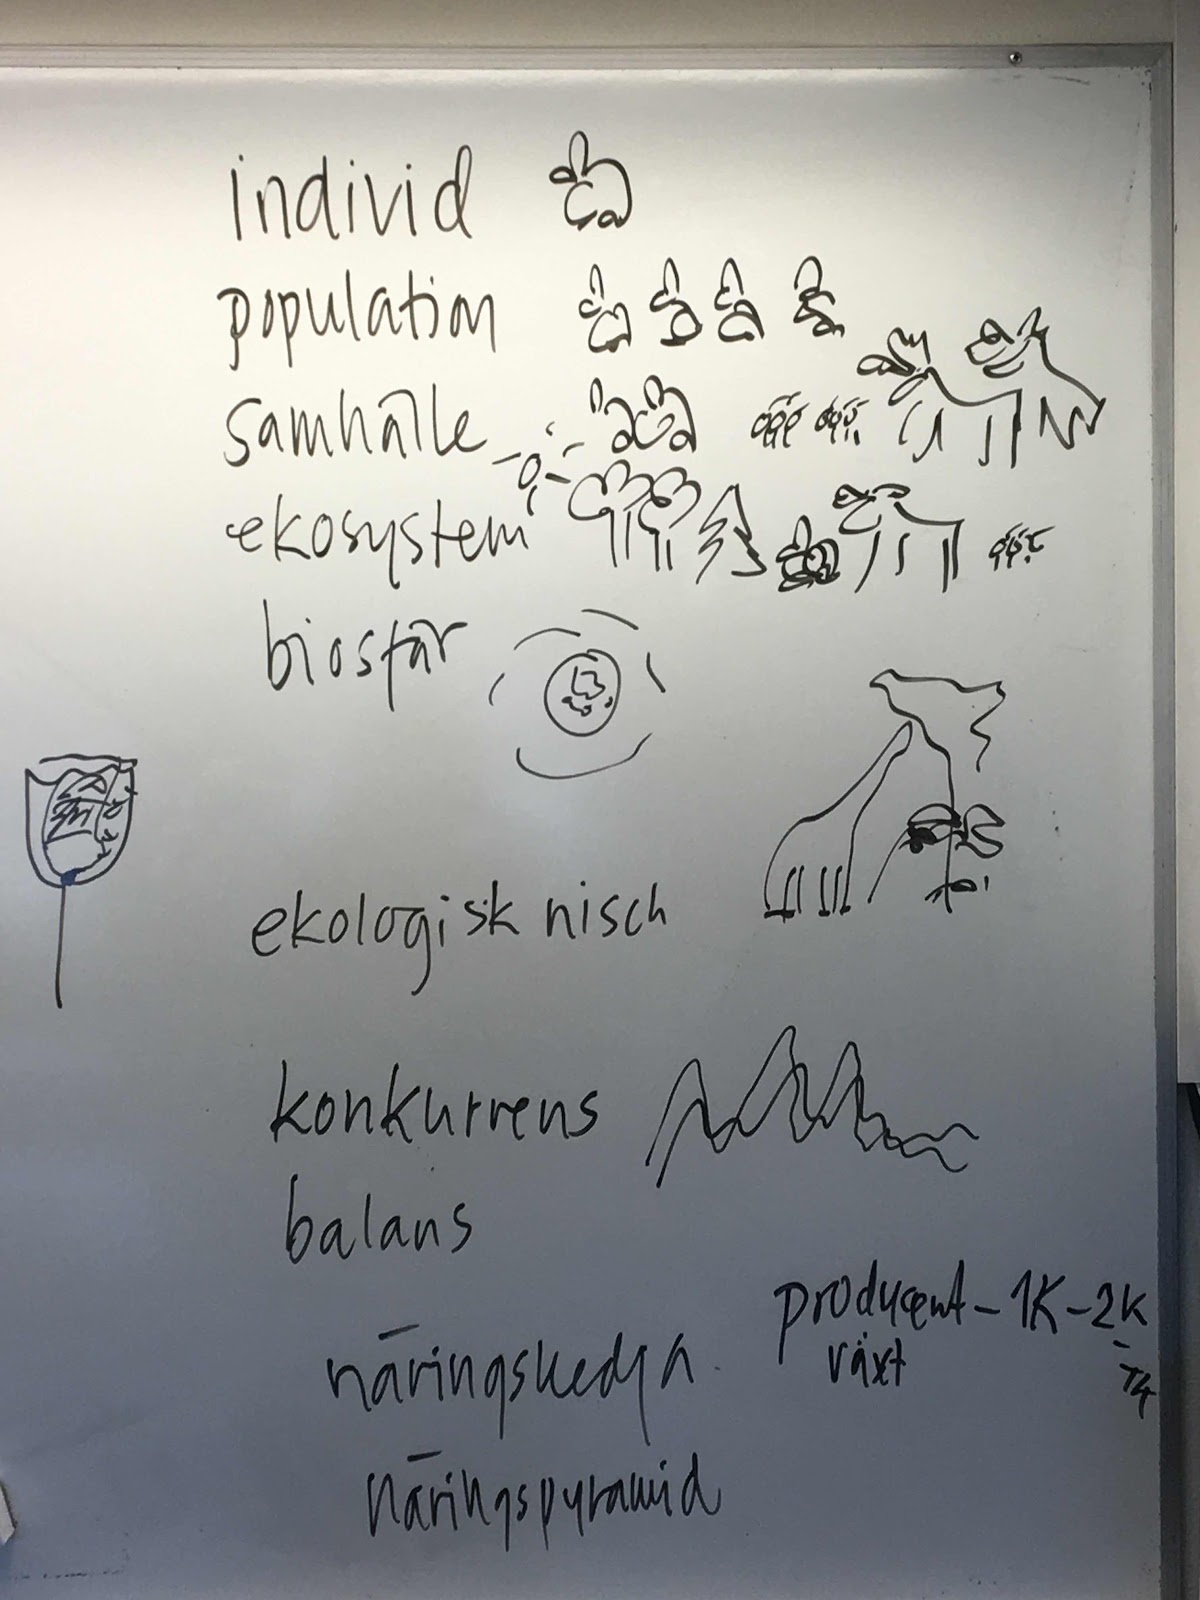 individ
population
samhälle
ekosystem
biosfär
ekologisk nisch
konkurrens
balans
producent - 1K - 2K
växt
näringskedja
näringspyramid